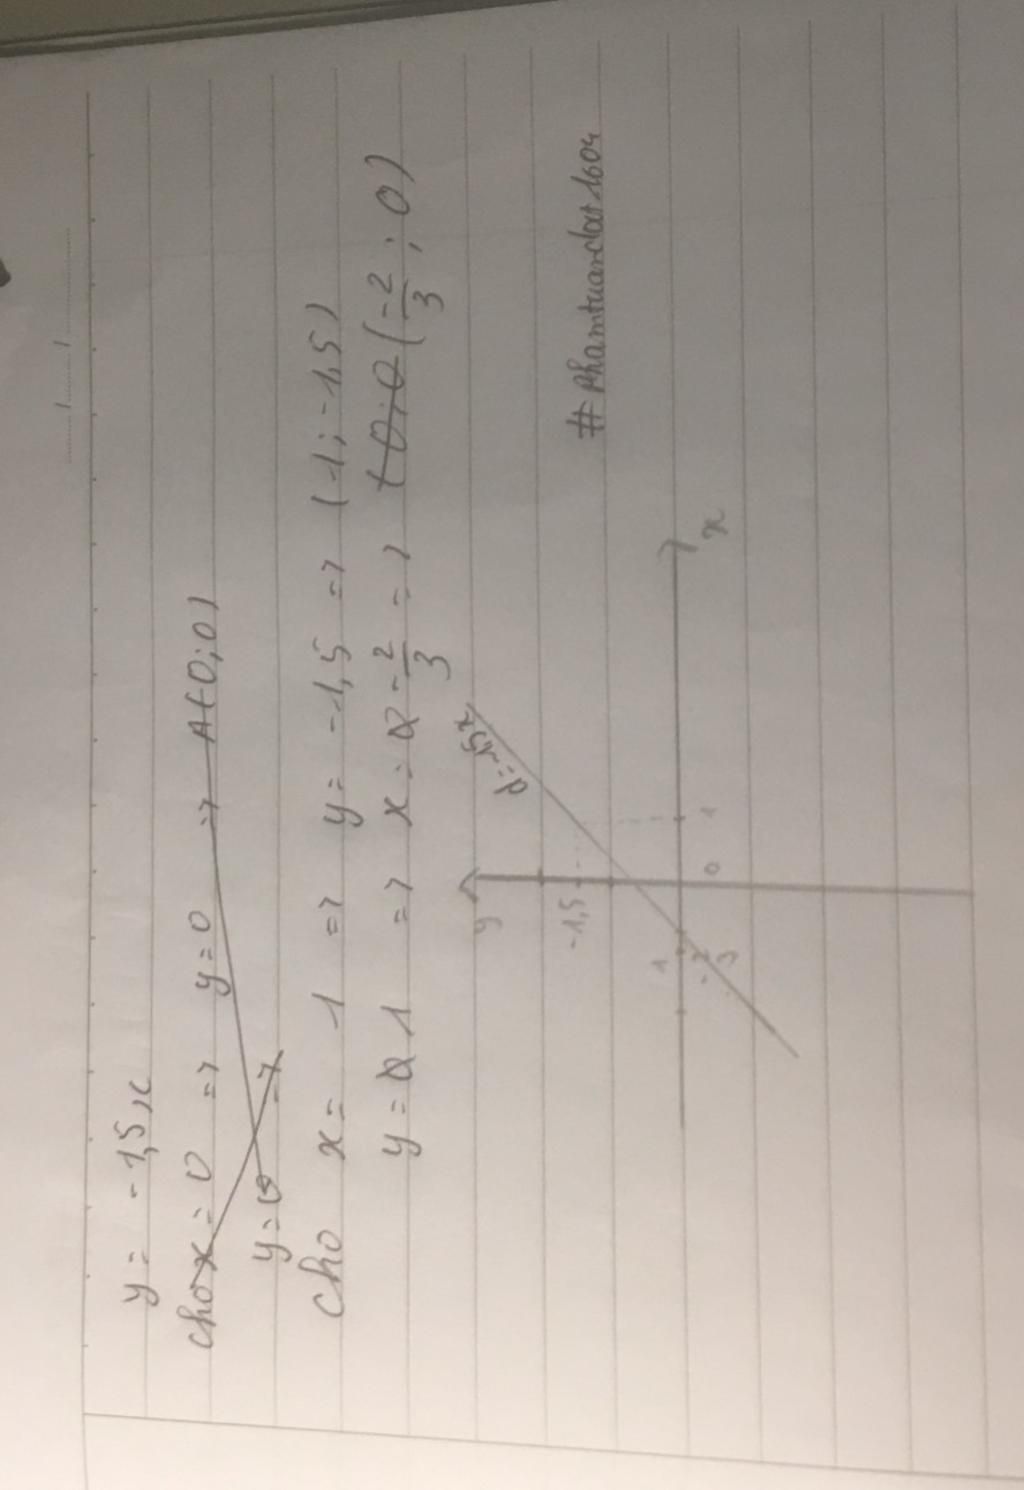 y = -1,5x
cho x = 0 => y = 0 => A(0;0)
y = 0 =>
cho x = 1 => y = -1,5 => (1; -1,5)
y = 1 => x = -2/3 => (0;0) (-2/3; 0)
y
y=-1,5x
-1,5
1
0
1
x
-2/3
#Phamtuandat1604